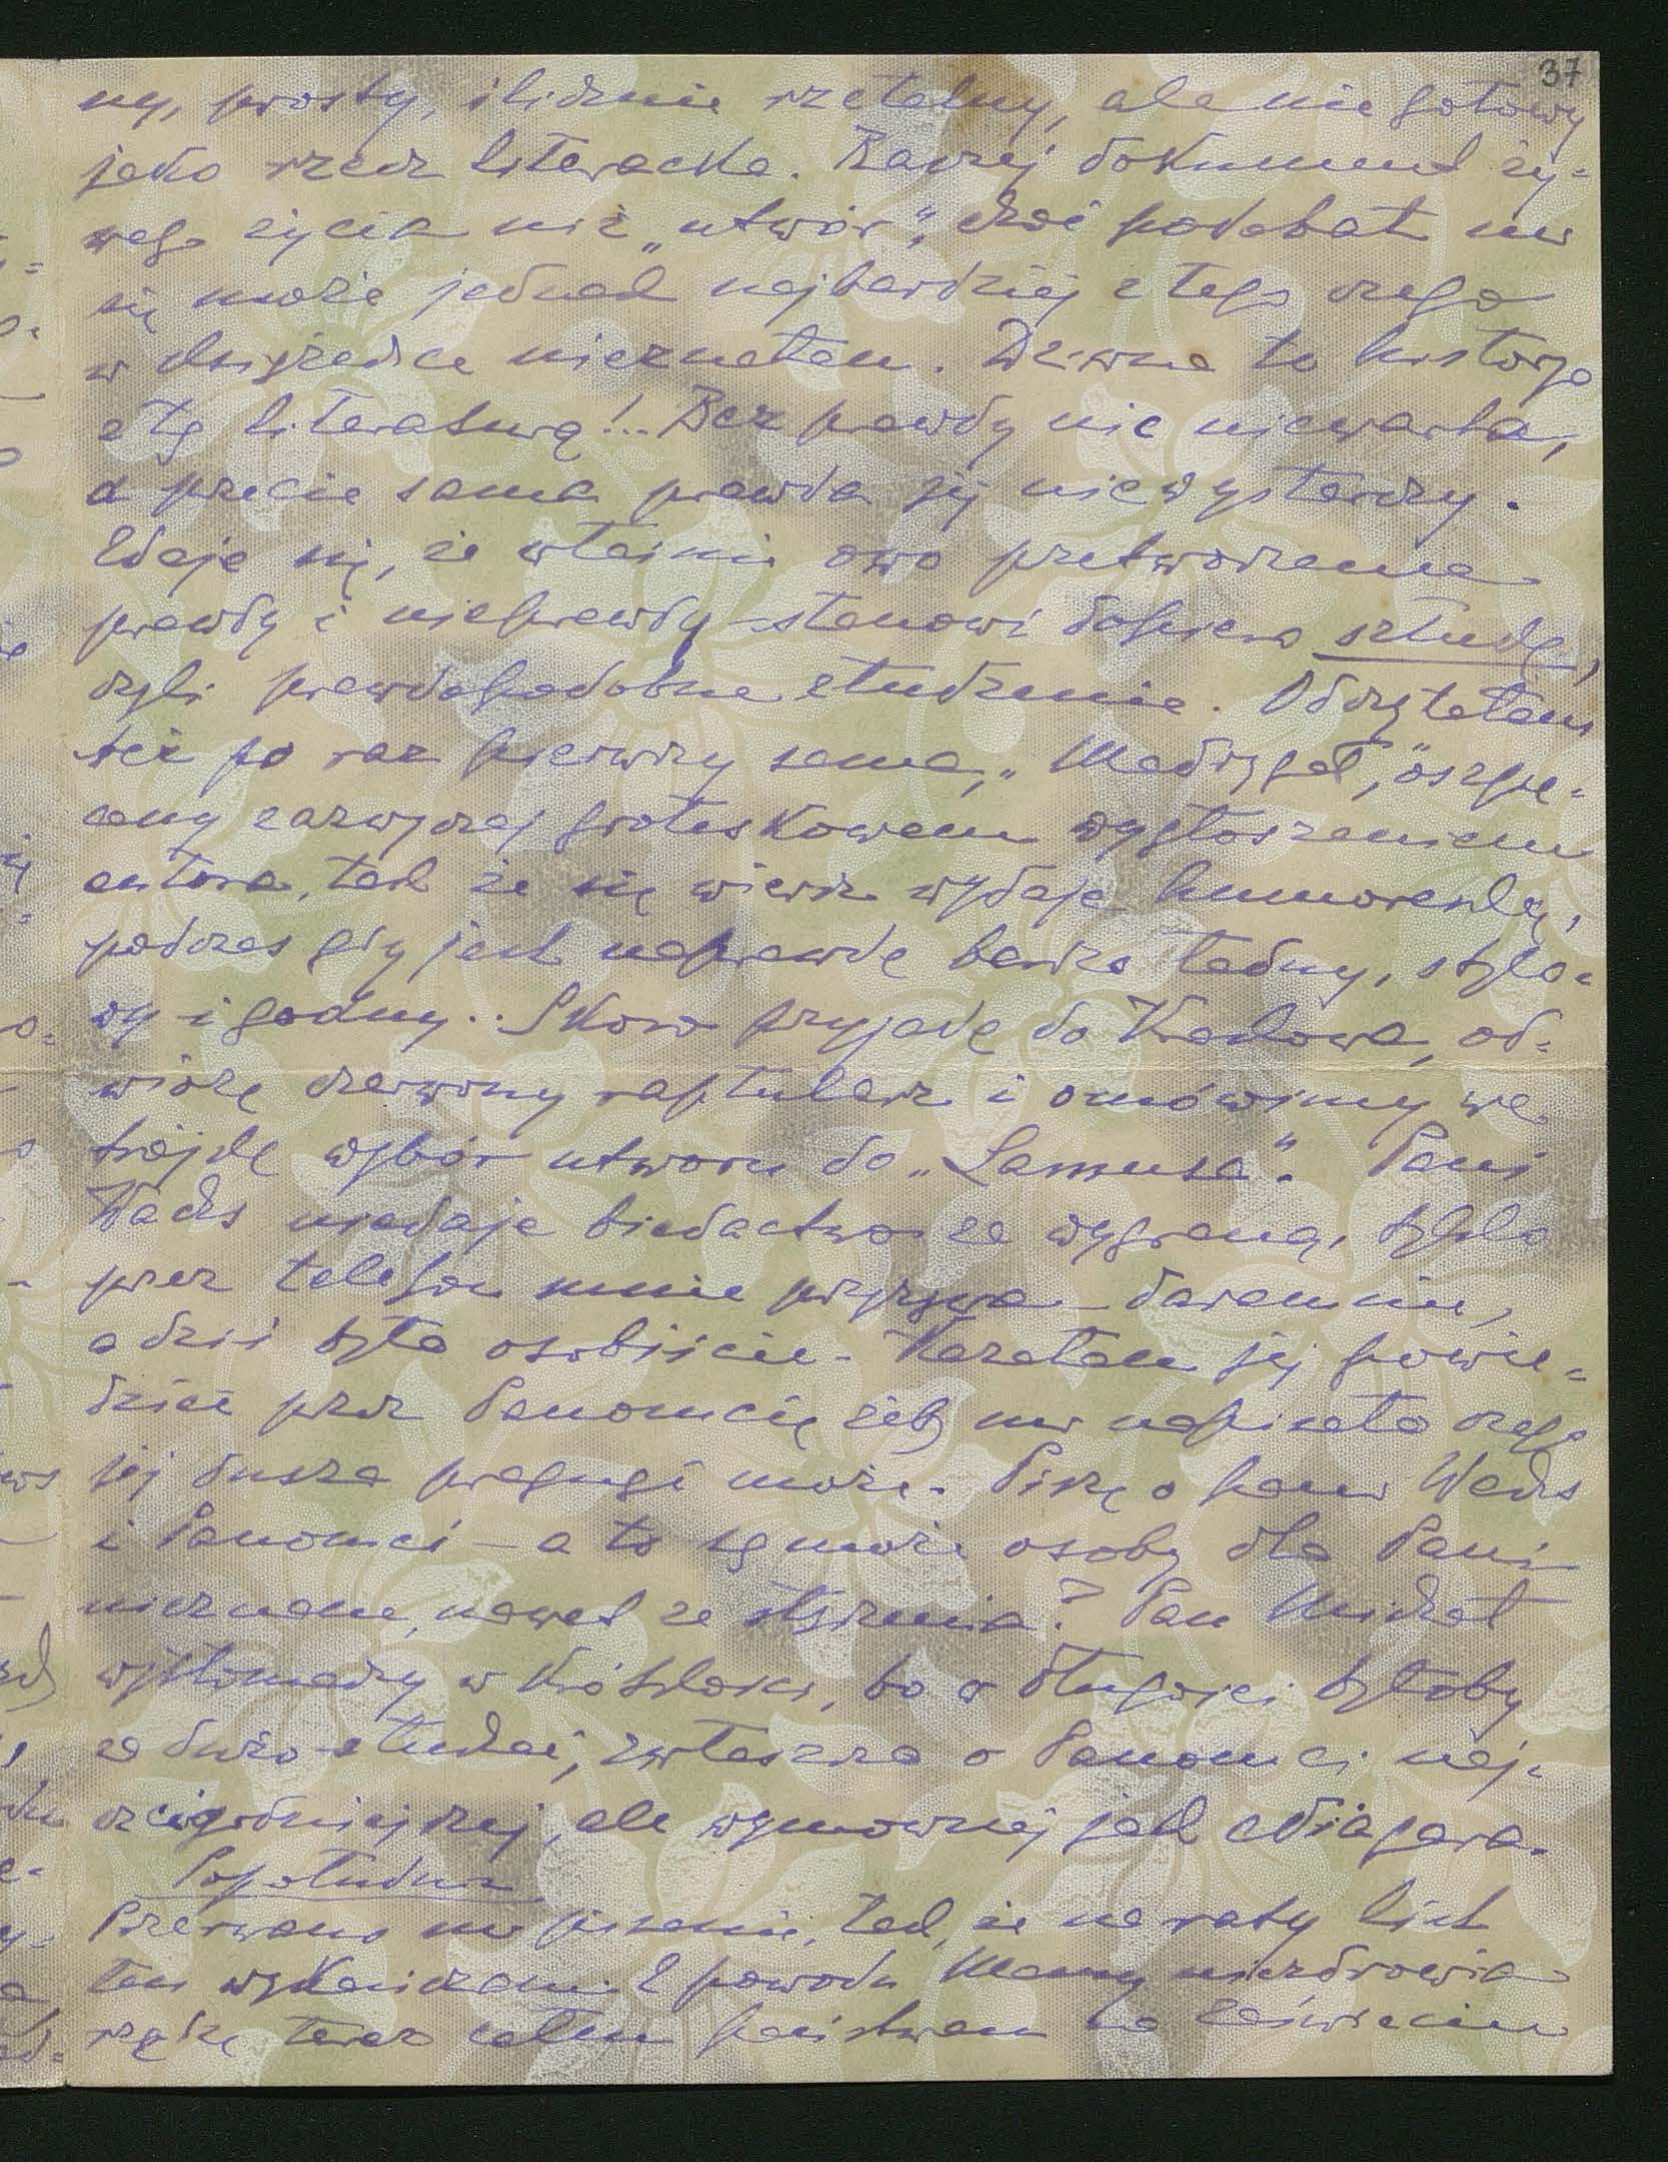 37
ny, prosty, ślicznie rzetelny, ale nie gotowy
jako rzecz literacka. Raczej dokument ży=
wego życia niż „utwór”, choć podobał mi
się może jednak najbardziej z tego czego
w książeczce nieznałam. Dziwna to historya
z tą literaturą!.. Bez prawdy nic niewarta,
a przecie sama prawda jej niewystarczy.
Zdaje się, że właśnie owo przetworzenie
prawdy i nieprawdy stanowi dopiero sztukę,
czyli prawdopodobne złudzenie. Odczytałam
też po raz pierwszy sama „Madrygał,” oszpe=
cony zazwyczaj groteskowem wygłoszeniem
autora, tak że się wiersz wydaje humoreską,
podczas gdy jest naprawdę bardzo ładny, stylo=
wy i godny.. Skoro przyjadę do Krakowa, od=
wiozę czerwony raptularz i omówimy we
trójkę wybór utworu do „Lamusa”. Pani
Wachs niedaje biedactwo za wygraną, tylko
przez telefon mnie przyzywa daremnie,
a dziś była osobiście. Kazałam jej powie=
dzieć przez Panomcię żeby mi napisała czego
jej dusza pragnąć może. Piszę o pani Wachs
i Panomci – a to są może osoby dla Pani
nieznane, nawet ze słyszenia? Pan Michał
wytłomaczy w krótkości, bo o długości byłoby
za dużo słuchać, zwłaszcza o Panomci naj=
czcigodniejszej, ale wymownej jak Niagara.
Popołudniu
Przerwano mi pisanie, tak, że na raty list
ten wykańczam. Z powodu Mamy niezdrowia
rządzę teraz całem państwem na Zaświeciu